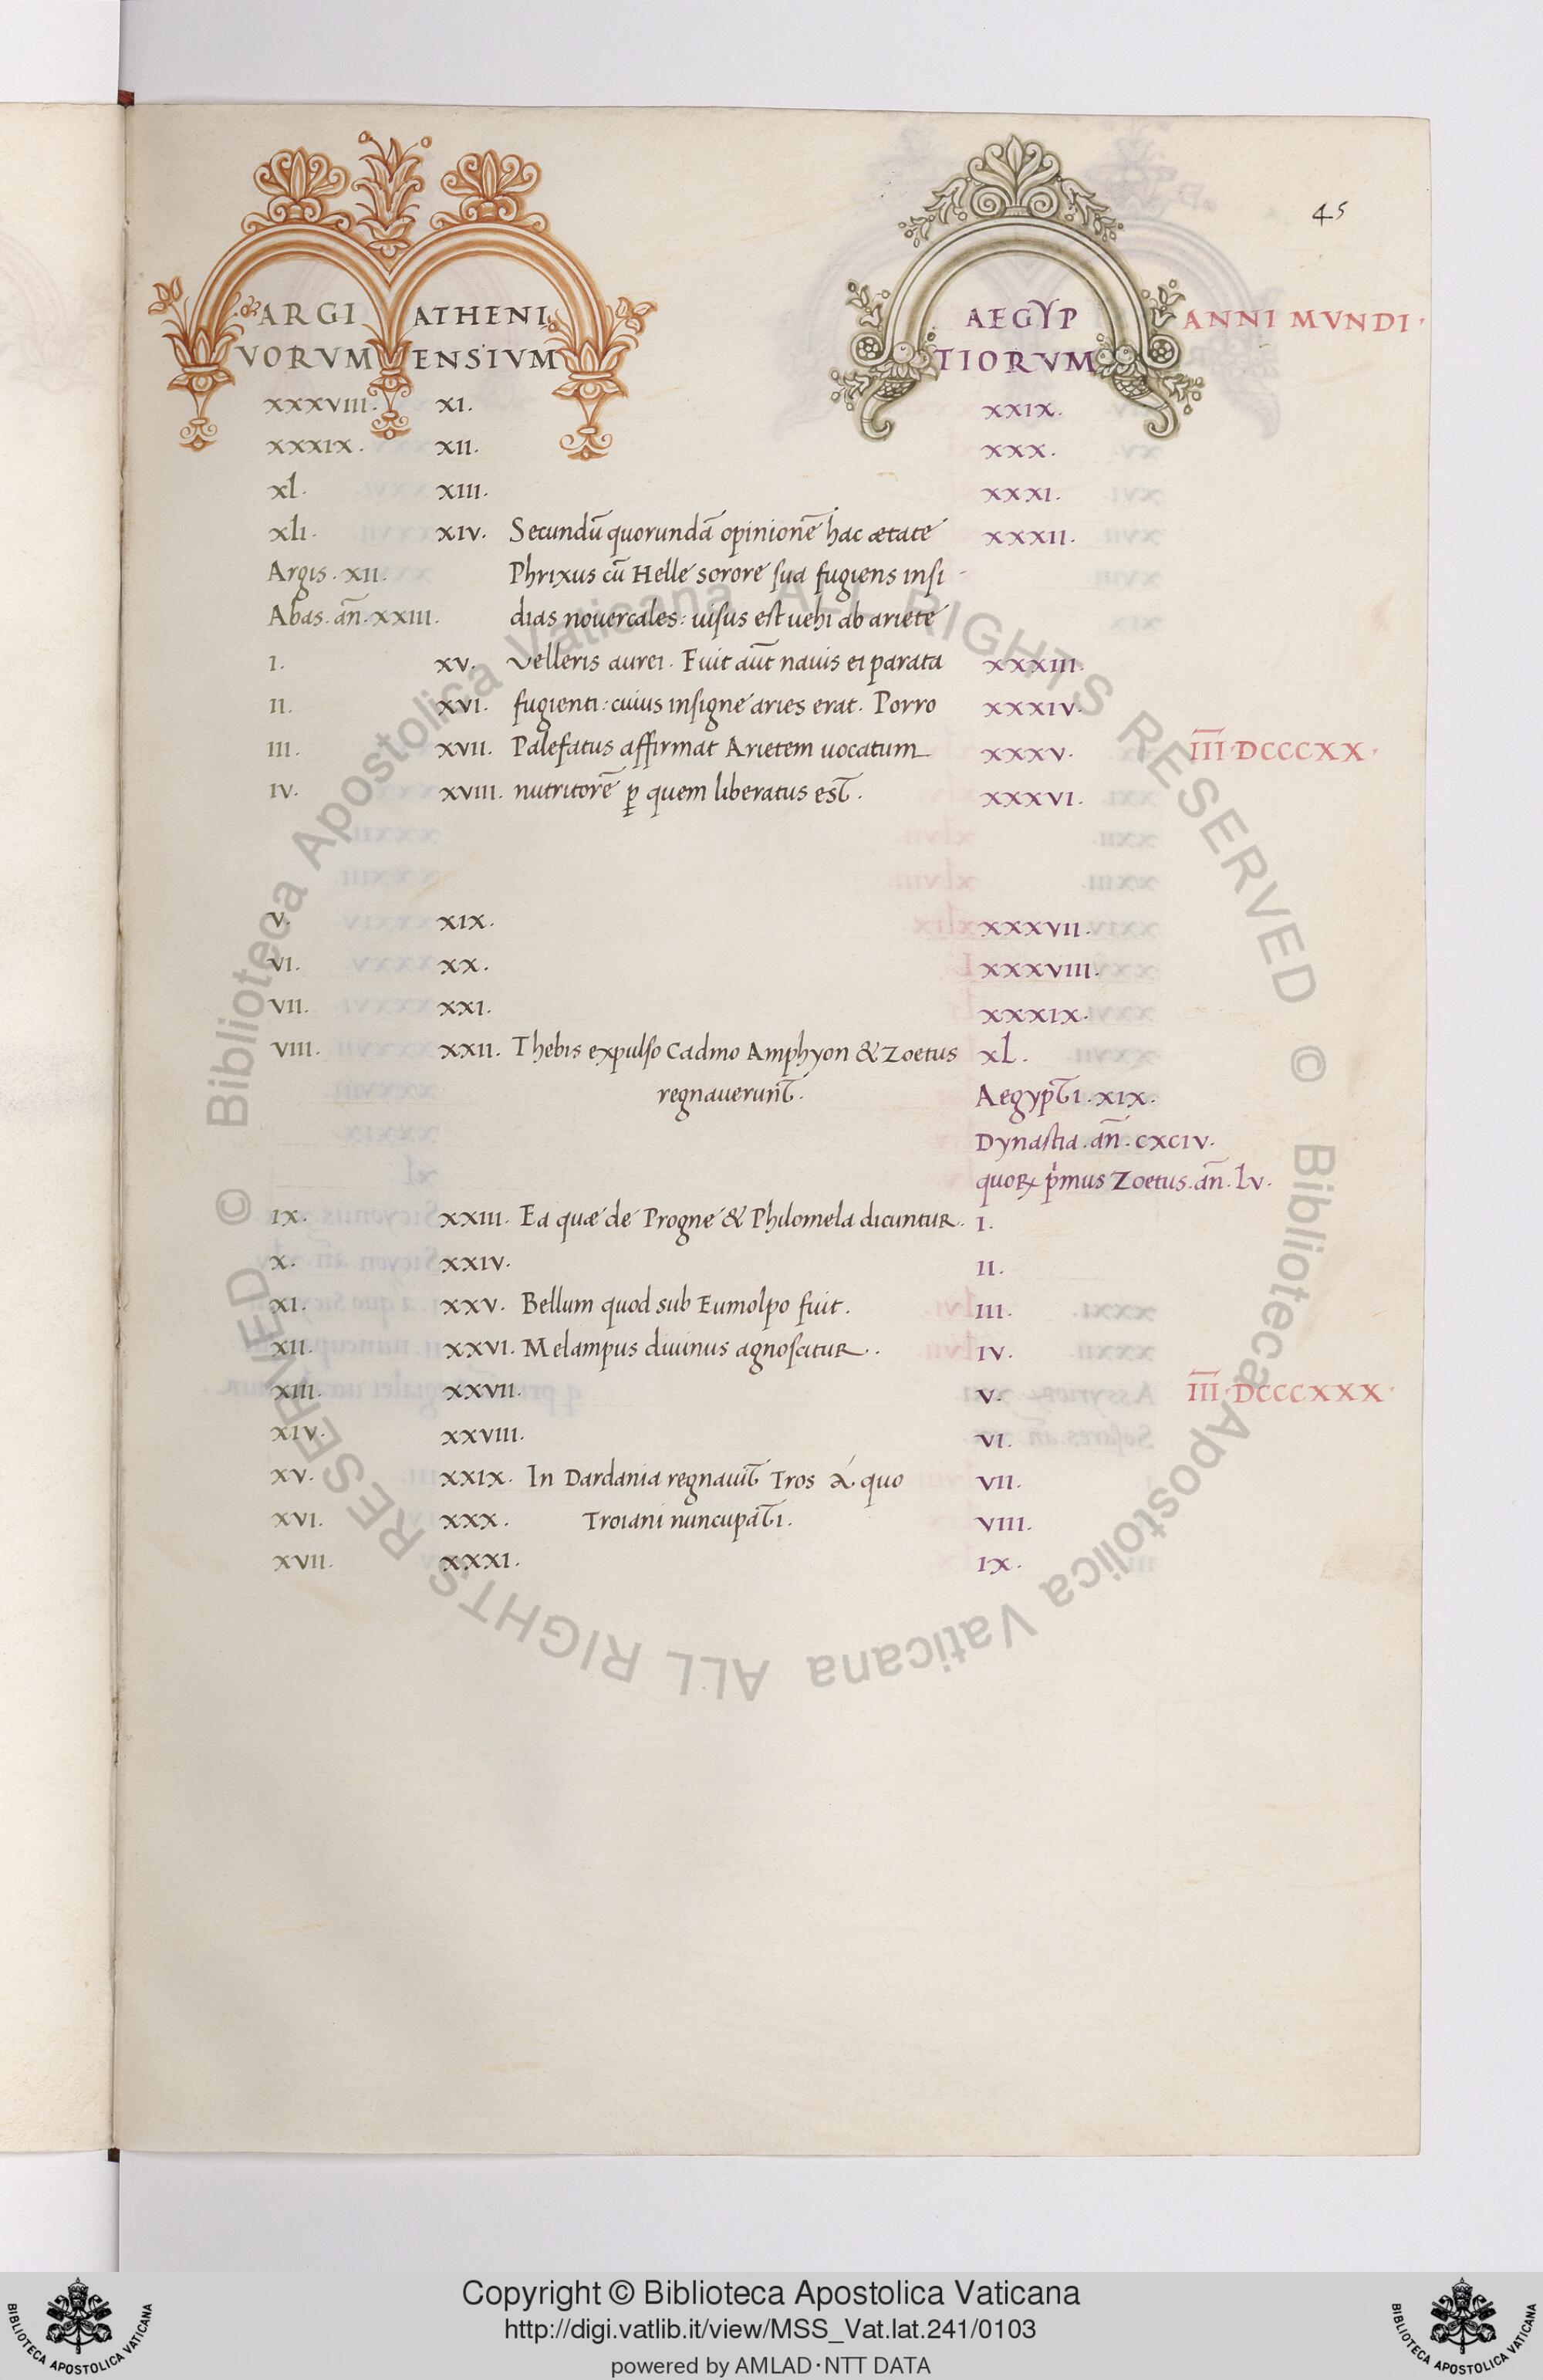 45
ARGI ATHENI AEGYP ANNI MVNDI.
VORVM ENSIVM TIORVM
XXXVIII. XI. XXIX.
XXXIX. XII. XXX.
xl. XIII. XXXI.
xli. XIV. Secundū quorundā opinionē hac ætate XXXII.
Argis. XII. Phrixus cū Helle sorore sua fugiens insi-
Abas. an̄. XXIII. dias nouercales: uisus est uehi ab ariete
I. XV. velleris aurei. Fuit aūt nauis ei parata XXXIII.
II. XVI. fugienti: cuius insigne aries erat. Porro XXXIV.
III. XVII. Palefatus affirmat Arietem uocatum XXXV. I̅I̅I̅.DCCCXX.
IV. XVIII. nutritorē ꝑ quem liberatus est. XXXVI.
V. XIX. XXXVII.
VI. XX. XXXVIII.
VII. XXI. XXXIX.
VIII. XXII. Thebis expulso Cadmo Amphyon & Zoetus xl.
regnauerunt. Aegypti. XIX.
Dynastia. an̄. CXCIV.
quoꝝ pͥmus Zoetus. an̄. lv.
IX. XXIII. Ea quæ de Progne & Philomela dicuntur. I.
X. XXIV. II.
XI. XXV. Bellum quod sub Eumolpo fuit. III.
XII. XXVI. Melampus diuinus agnoscitur. IV.
XIII. XXVII. V. I̅I̅I̅.DCCCXXX.
XIV. XXVIII. VI.
XV. XXIX. In Dardania regnauit Tros á quo VII.
XVI. XXX. Troiani nuncupati. VIII.
XVII. XXXI. IX.
© Biblioteca Apostolica Vaticana ALL RIGHTS RESERVED
© Biblioteca Apostolica Vaticana ALL RIGHTS RESERVED
Copyright © Biblioteca Apostolica Vaticana
http://digi.vatlib.it/view/MSS_Vat.lat.241/0103
powered by AMLAD·NTT DATA
BIBLIOTECA APOSTOLICA VATICANA
BIBLIOTECA APOSTOLICA VATICANA